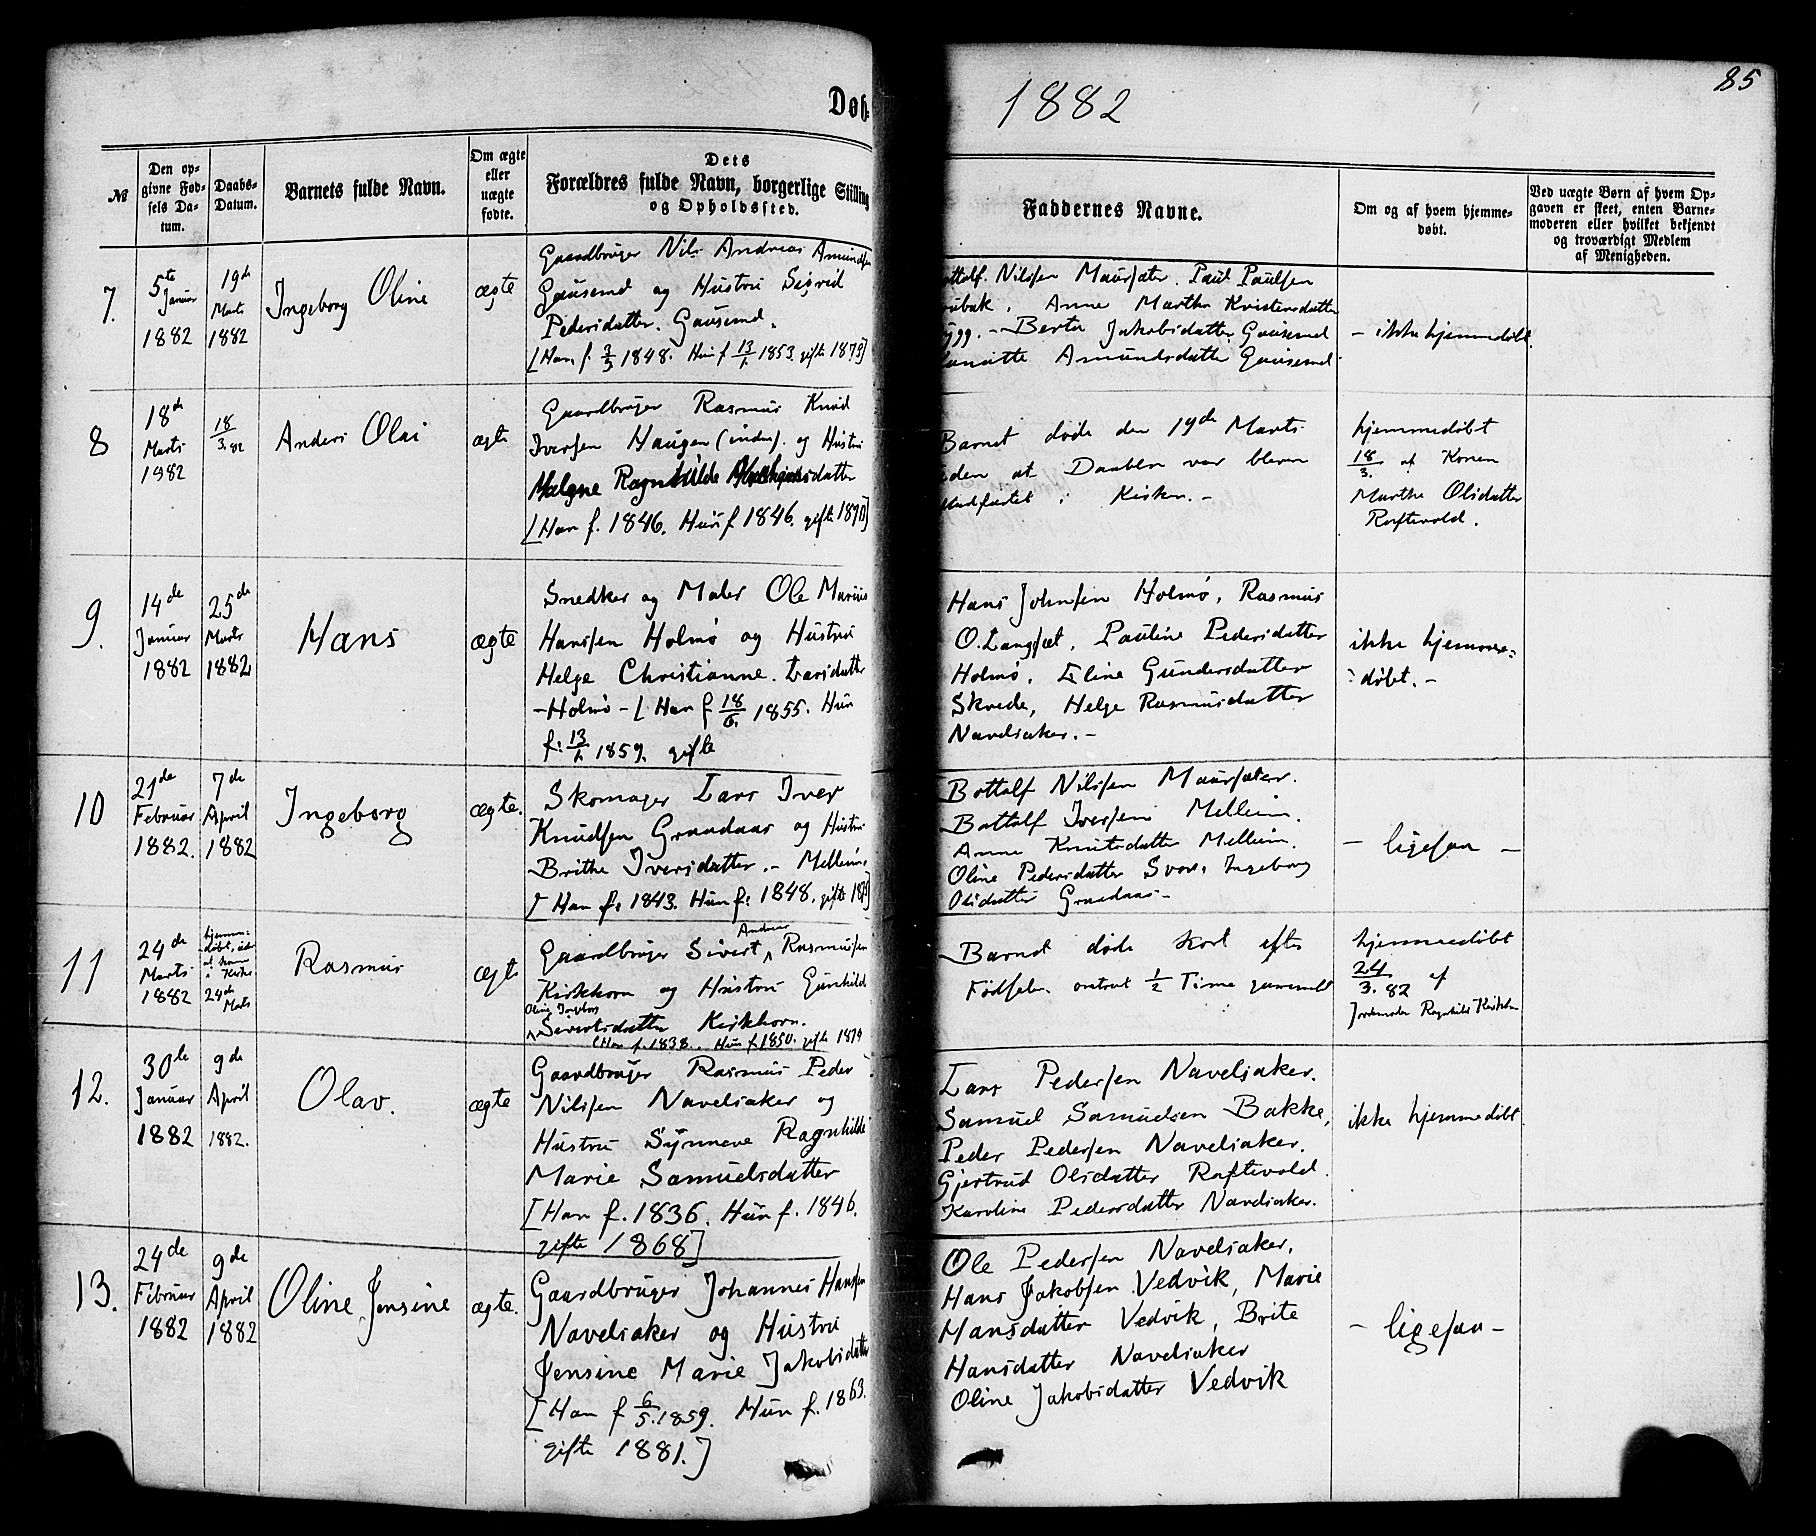 Døb-
1882
85
№
Den op-
givne Fød-
sels Da-
tum.
Daabs-
Datum.
Barnets fulde Navn.
Om ægte
eller
uægte
fødte.
Dets
Forældres fulde Navn, borgerlige Stilling
og Opholdssted.
Faddernes Navne.
Om og af hvem hjemme-
døbt.
Ved uægte Børn af hvem Op-
gaven er skeet, enten Barne-
moderen eller hvilket bekjendt
og troværdigt Medlem
af Menigheden.
7.
5te
Januar
1882
19de
Marts
1882
Ingeborg Oline
ægte
Gaardbruger Nils Andreas Amundsen
Gausemd og Hustru Sigrid
Pedersdatter. Gausemd.
[Han f. 1848. Hun f 13/1 1853. gifte 1873]
Nilssen Maursæter. Paul Paulsen
Anne Marthe
Berte Jakobsdatter Gausemd
Amundsdatter Gausemd
- ikke hjemmedøbt.
8
18de
Marts
1882
18/3. 82
Anders Olai
ægte
Gaardbruger Rasmus Knud
Iversen Haugen og Hustru
Ragnhilde
[Han f. 1846. Hun f 1846. gifte]
Barnet døde den 19de Marts
at Daaben var bleven
i Kirken. -
hjemmedøbt
18/3. af Konen
Marthe Olsdatter
Raftevold.
9.
14de
Januar
1882
25de
Marts
1882
Hans
ægte
Snedker og Maler Ole Marius
Hanssen Holmø og Hustru
Helge Christianne Larsdatter
- Holmø - [Han f 18/6. 1855. Hun
f: 13/1 1859. gifte
Hans Johnsen Holmø, Rasmus
O. Langsæt, Pauline Pedersdatter
Holmø, Eline Gundersdatter
Skrede, Helge Rasmusdatter
Navelsaker. -
ikke hjemme-
døbt. -
10
21de
Februar
1882.
7de
April
1882
Ingeborg
ægte.
Skomager Lars Iver
Knudsen Graadaas og Hustru
Brithe Iversdatter. - Mellem.
[Han f: 1843. Hun f: 1848. gifte]
Bottolf Nilssen Maursæter.
Bottolf Iversen Mellem.
Anne Knutsdatter Mellem.
Oline Pedersdatter Svor. Ingeborg
Olsdatter Graadaas -
- ligesaa -
11
24de
Marts
1882
24de
Marts
Rasmus
ægte
Andreas
Gaardbruger Sivert ^ Rasmussen
Kirkhorn og Hustru Gunhild
Oline Ingeborg
^ Sivertsdatter Kirkhorn.
(Han f. 1838. Hun f. 1850. gifte 1874
Barnet døde kort efter
Fødselen omtrent 1/2 Time gammelt
hjemmedøbt
24/3. 82 af
Jordmoder Ragnhild Kirkhorn
12.
30te
Januar
1882
9de
April
1882.
Olav.
ægte
Gaardbruger Rasmus Peder
Nilssen Navelsaker og
Hustru Synneve Ragnhilde
Marie Samuelsdatter
[Han f. 1836. Hun f. 1846.
gifte 1868]
Lars Pedersen Navelsaker.
Samuel Samuelsen Bakke,
Peder Pedersen Navelsaker.
Gjertrud Olsdatter Raftevold.
Karoline Pedersdatter Navelsaker.
ikke hjemmedøbt
13.
24de
Februar
1882
9de
April
1882
Oline Jensine
ægte.
Gaardbruger Johannes Hansen
Navelsaker og Hustru
Jensine Marie Jakobsdatter
[Han f 6/5. 1859. Hun f. 1863.
gifte 1881.]
Ole Pedersen Navelsaker,
Hans Jakobsen Vedvik, Marie
Hansdatter Vedvik, Brite
Hansdatter Navelsaker
Oline Jakobsdatter Vedvik
- ligesaa -